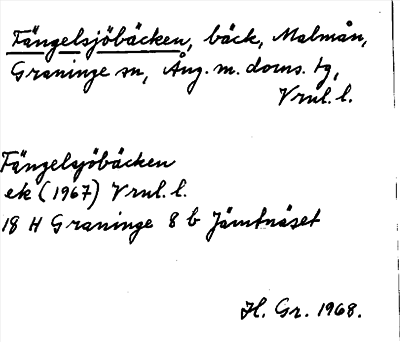 Fängelsjöbäcken, bäck, Malmån,
Graninge sn, Ång. m. doms. tg,
Vrnl. l.
Fängelsjöbäcken
ek (1967) Vrnl. l.
18 H Graninge 8 b Jämtnäset
H. Gr. 1968.